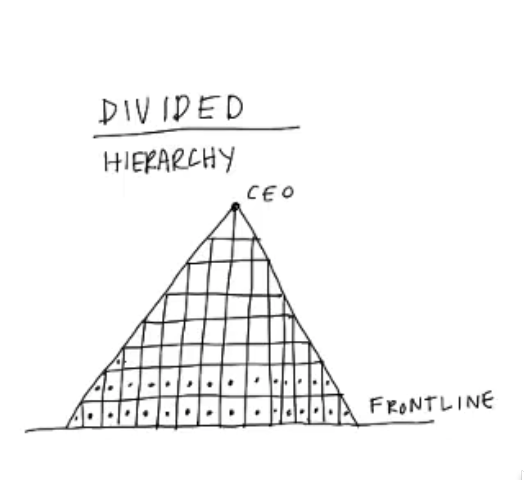 DIVIDED
HIERARCHY
CEO
FRONTLINE